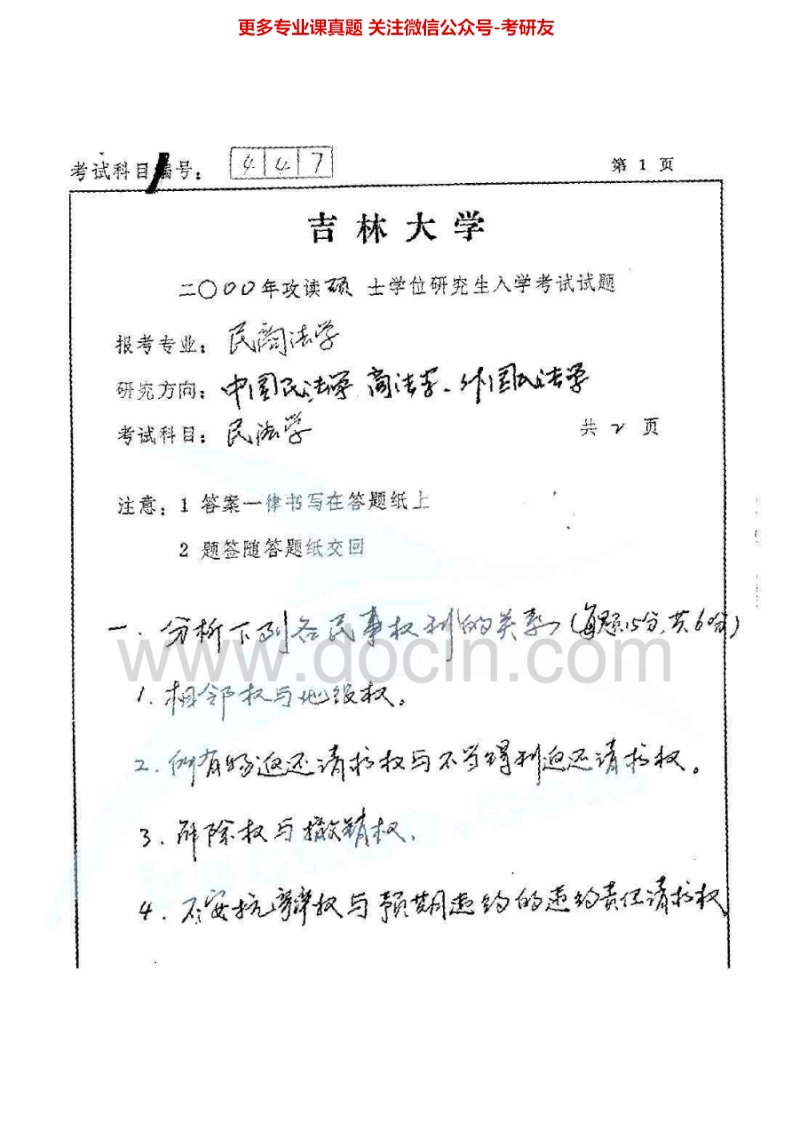 更多专业课真题 关注微信公众号-考研友
考试科目编号： 447 第 1 页
吉林大学
二〇〇〇年攻读硕士学位研究生入学考试试题
报考专业：民商法学
研究方向：中国民法学 商法学、外国民法学
考试科目：民法学 共 2 页
注意：1 答案一律书写在答题纸上
2 题签随答题纸交回
一、分析下列各民事权利的关系（每题15分，共60分）
www.docin.com
1. 相邻权与地役权。
2. 所有物返还请求权与不当得利返还请求权。
3. 解除权与撤销权．
4. 不安抗辩权与预期违约的违约责任请求权